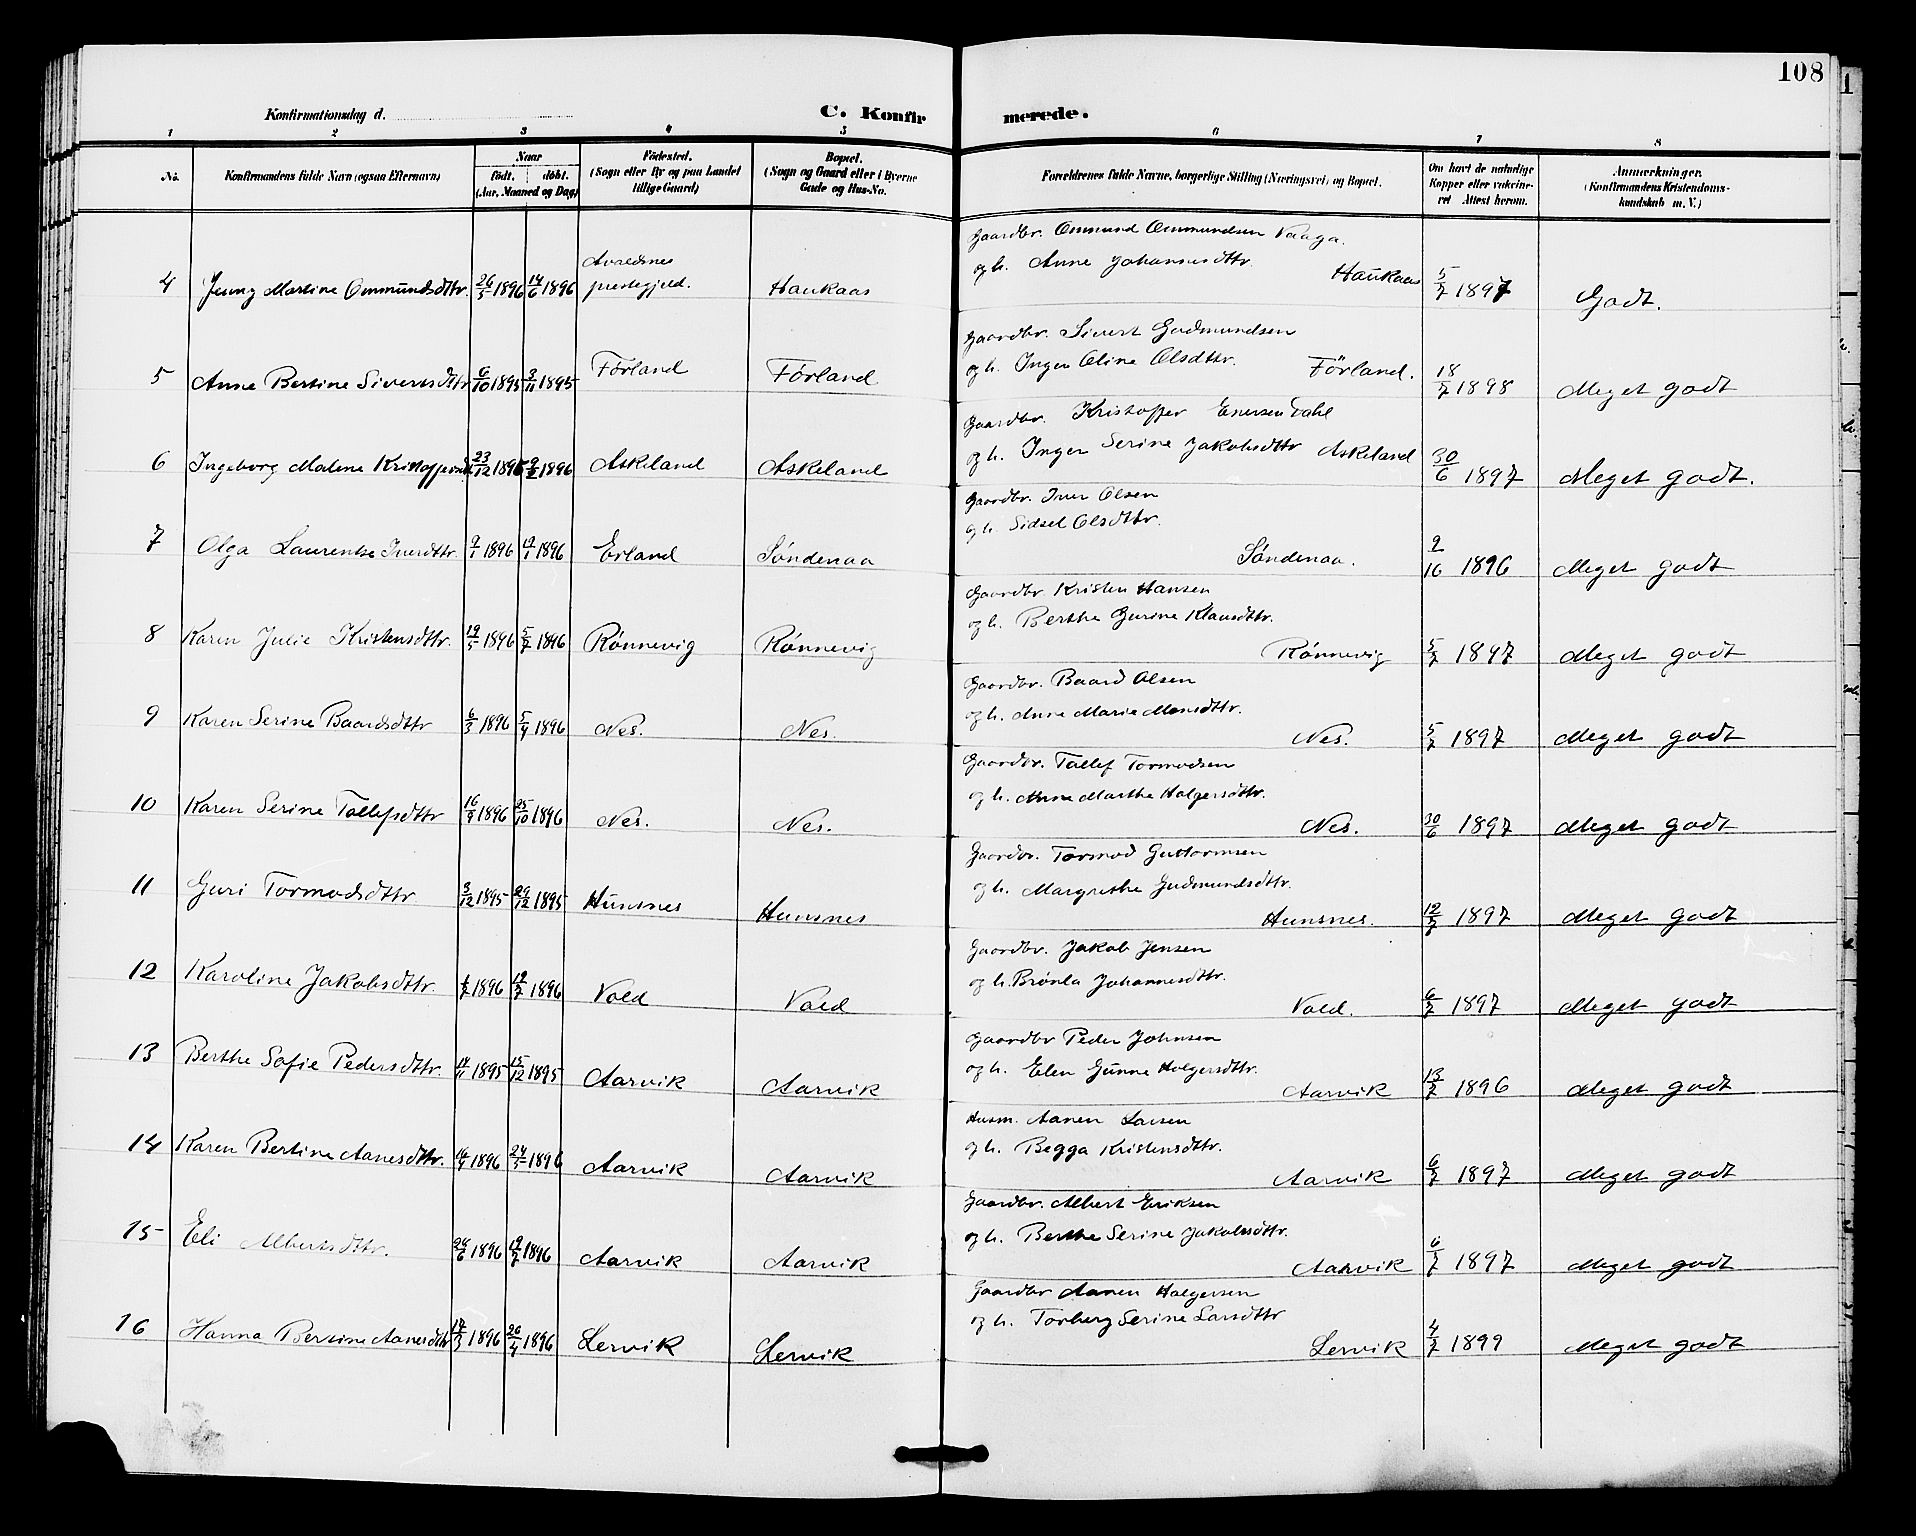 108
Konfirmationsdag d.
C. Konfir merede.
1 2 3 4 5 6 7 8
No. Konfirmandens fulde Navn (ogsaa Efternavn) Naar født. døbt. (Aar, Maaned og Dag) Fødested. (Sogn eller By og paa Landet tillige Gaard) Bopæl. (Sogn og Gaard eller i Byerne Gade og Hus-No. Forældrenes fulde Navne, borgerlige Stilling (Næringsvei) og Bopæl. Om havt de naturlige Kopper eller vakcineret Attest herom. Anmærkninger. (Konfirmandens Kristendomskundskab m. V.)
Gaardbr. Ommund Ommundsen Vaaga.
og h. Anne Johannesdttr. Haukaas
4 Jenny Martine Ommundsdttr. 26/5 1896 14/6 1896 Avaldsnes prestegjeld. Haukaas 5/7 1897 Godt.
Gaardbr. Sivert Gudmundsen
og h. Inger Oline Olsdttr. Förland.
5 Anne Bertine Sivertsdttr 6/10 1895 3/11 1895 Förland Förland 18/7 1898 Meget godt
Gaardbr. Kristoffer Enersen Dahl
og h. Inger Serine Jakobsdttr Askeland
6 Ingeborg Malene Kristoffersdt 23/12 1895 9/2 1896 Askeland Askeland 30/6 1897 Meget godt.
Gaardbr. Iver Olsen
og h. Sidsel Olsdttr.
Søndenaa.
7 Olga Laurentse Iverdttr. 9/1 1896 19/1 1896 Erland Søndenaa 9/10 1896 Meget godt
Gaardbr Kristen Hansen
og h. Berthe Gurine Klausdttr.
Rønnevig
8 Karen Julie Kristensdttr. 19/5 1896 5/7 1896 Rønnevig Rønnevig 5/7 1897 Meget godt
Gaardbr. Baard Olsen
og h. Anne Marie Monsdttr.
Nes.
9 Karen Serine Baardsdttr 6/3 1896 5/4 1896 Nes. Nes. 5/7 1897 Meget godt
Gaardbr. Tollef Tormodsen
og h. Anne Marthe Holgersdttr.
Nes.
10 Karen Serine Tollefsdttr 16/9 1896 25/10 1896 Nes. Nes. 30/6 1897 Meget godt
Gaardbr. Tormod Guttormsen
og h. Margrethe Gudmundsdttr.
Hunsnes.
11 Guri Tormodsdttr 3/12 1895 29/12 1895 Hunsnes Hunsnes 12/7 1897 Meget godt
Gaardbr. Jakob Jensen
og h. Brønla Johannesdttr.
Vold.
12 Karoline Jakobsdttr. 1896 19/7 1896 Vold Vold 6/7 1897 Meget godt
Gaardbr Peder Johnsen
og h. Elen Gunne Holgersdttr.
Aarvik
13 Berthe Sofie Pedersdttr. 14/11 1895 15/12 1895 Aarvik Aarvik 13/7 1896 Meget godt
Husm. Aanen Larsen
og h. Begga Kristensdttr.
Aarvik
14 Karen Bertine Aanesdttr. 1896 24/5 1896 Aarvik Aarvik 6/7 1897 Meget godt
Gaardbr. Albert Eriksen
og h. Berthe Serine Jakobsdttr.
Aarvik
15 Eli Albertsdttr. 28/6 1896 19/7 1896 Aarvik Aarvik 6/7 1897 Meget godt
Gaardbr Aanen Holgersen
og h. Torberg Serine Larsdttr
Lervik
16 Hanna Bertine Aanesdttr 17/3 1896 26/4 1896 Lervik Lervik 4/7 1899 Meget godt